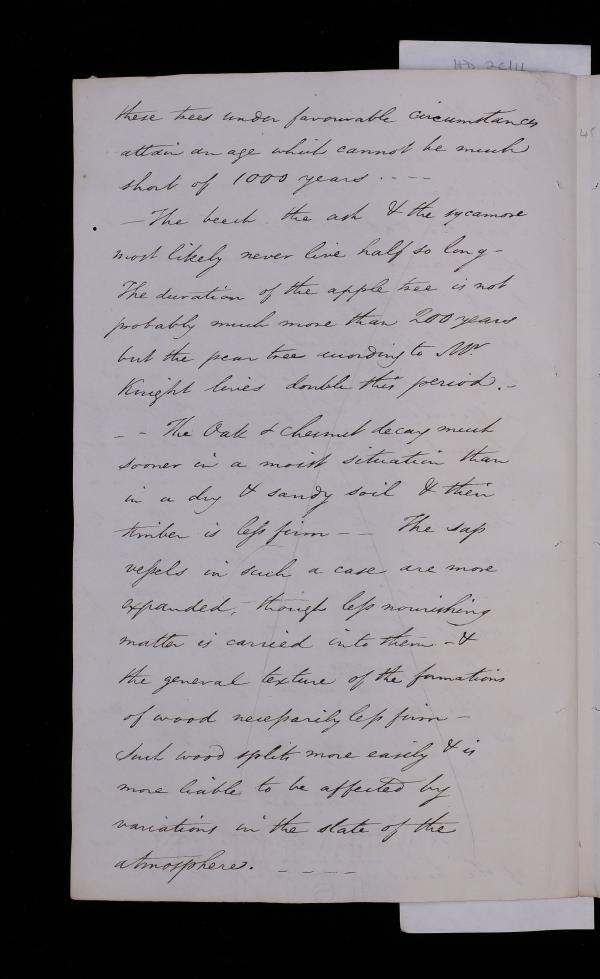 HD 26/11
these trees under favourable circumstances
attain an age which cannot be much
short of 1000 years - - - -
— The beech the ash & the sycamore
most likely never live half so long -
The duration of the apple tree is not
probably much more than 200 years
but the pear tree according to Mr.
Knight lives double this period. -
- - The Oak & chesnut decay much
sooner in a moist situation than
in a dry & sandy soil & their
timber is less firm - - The sap
vessels in such a case are more
expanded, though less nourishing
matter is carried into them - &
the general texture of the formations
of wood necessarily less firm -
Such wood splits more easily & is
more liable to be affected by
variations in the state of the
atmosphere. - - - -
45